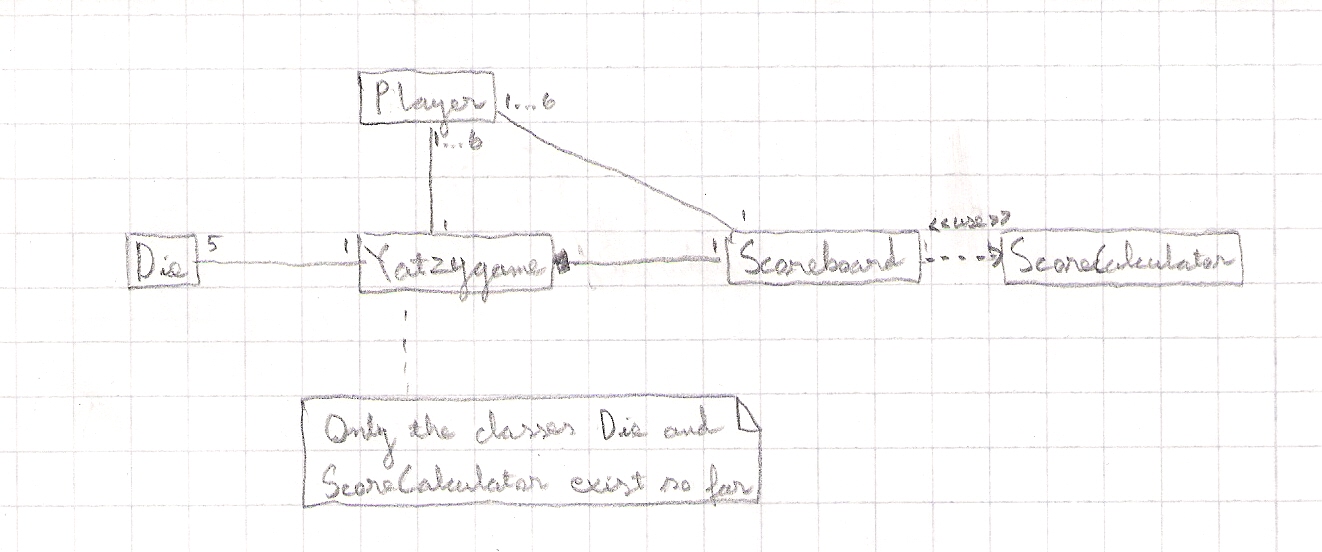 Player 1...6
1...6
1 1
<<use>>
Die 5 1 Yatzygame 1 Scoreboard ScoreCalculator
Only the classes Die and
ScoreCalculator exist so far